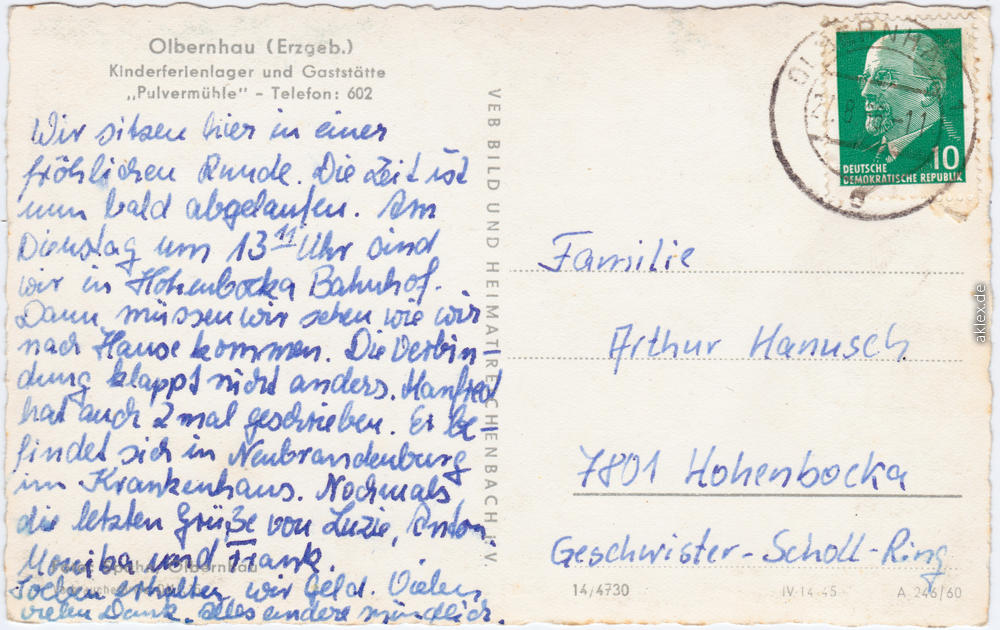 Olbernhau (Erzgeb.)
Kinderferienlager und Gaststätte
„Pulvermühle“ - Telefon: 602
Wir sitzen hier in einer
fröhlichen Runde. Die Zeit ist
nun bald abgelaufen. Am
Dienstag um 13 11 Uhr sind
wir in Hohenbocka Bahnhof.
Dann müssen wir sehen wie wir
nach Hause kommen. Die Verbin-
dung klappt nicht anders. Manfred
hat auch 2 mal geschrieben. Er be-
findet sich in Neubrandenburg
im Krankenhaus. Nochmals
die letzten Grüße von Luzie, Anton
Monika und Frank.
Soeben erhalten wir Geld. Vielen,
vielen Dank. Alles andere mündlich.
Olbernhau
VEB BILD UND HEIMAT REICHENBACH I. V.
OLBERNHAU
DEUTSCHE
DEMOKRATISCHE REPUBLIK
10
Familie
Arthur Hanusch
7801 Hohenbocka
Geschwister-Scholl-Ring
14/4730
IV-14-45
A 246/60
aklex.de